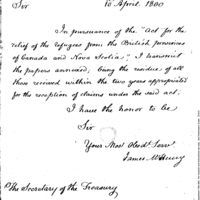 Sir                    10 April. 1800
In pursuance of the "Act for the
relief of the refugees from the British provinces
of Canada and Nova Scotia", I transmit
the papers annexed, being the residue of all
those received within the two years appropriated
for the reception of claims under the said act.
I have the honor to be
Sir
Your Most Obedt Serv
James McHenry
The Secretary of the Treasury